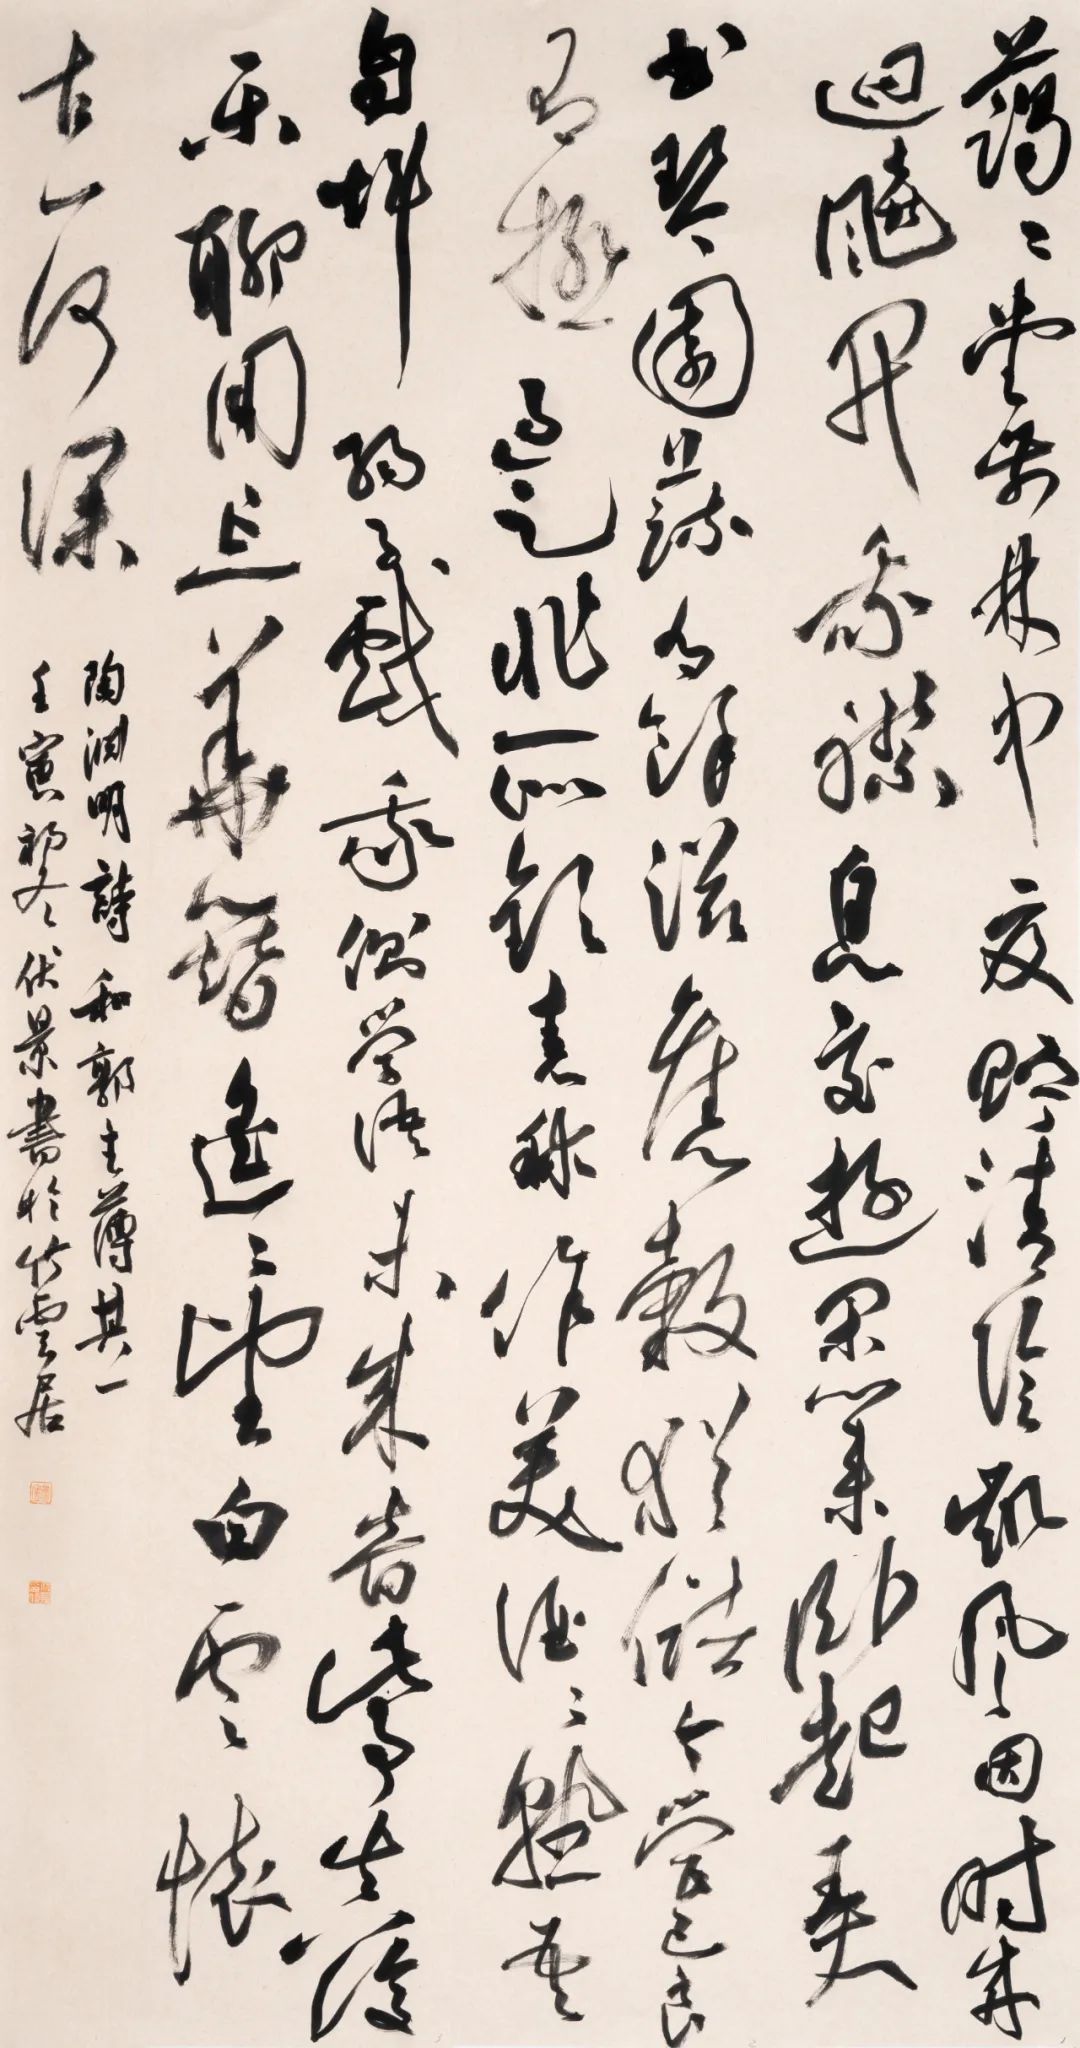 藹〻堂前林中夏貯清陰凱風因時来
迴飈開我襟息交遊閑業臥起弄
书琴園蔬有餘滋舊穀猶儲今營己良
有極過足非所欽舂秫作美酒〻熟吾
自斟弱子戲我側學語未成音此事真復
樂聊用忘華簪遙〻望白雲懷
古一何深
陶淵明詩和郭主薄其一
壬寅初冬伏景書於竹雲居